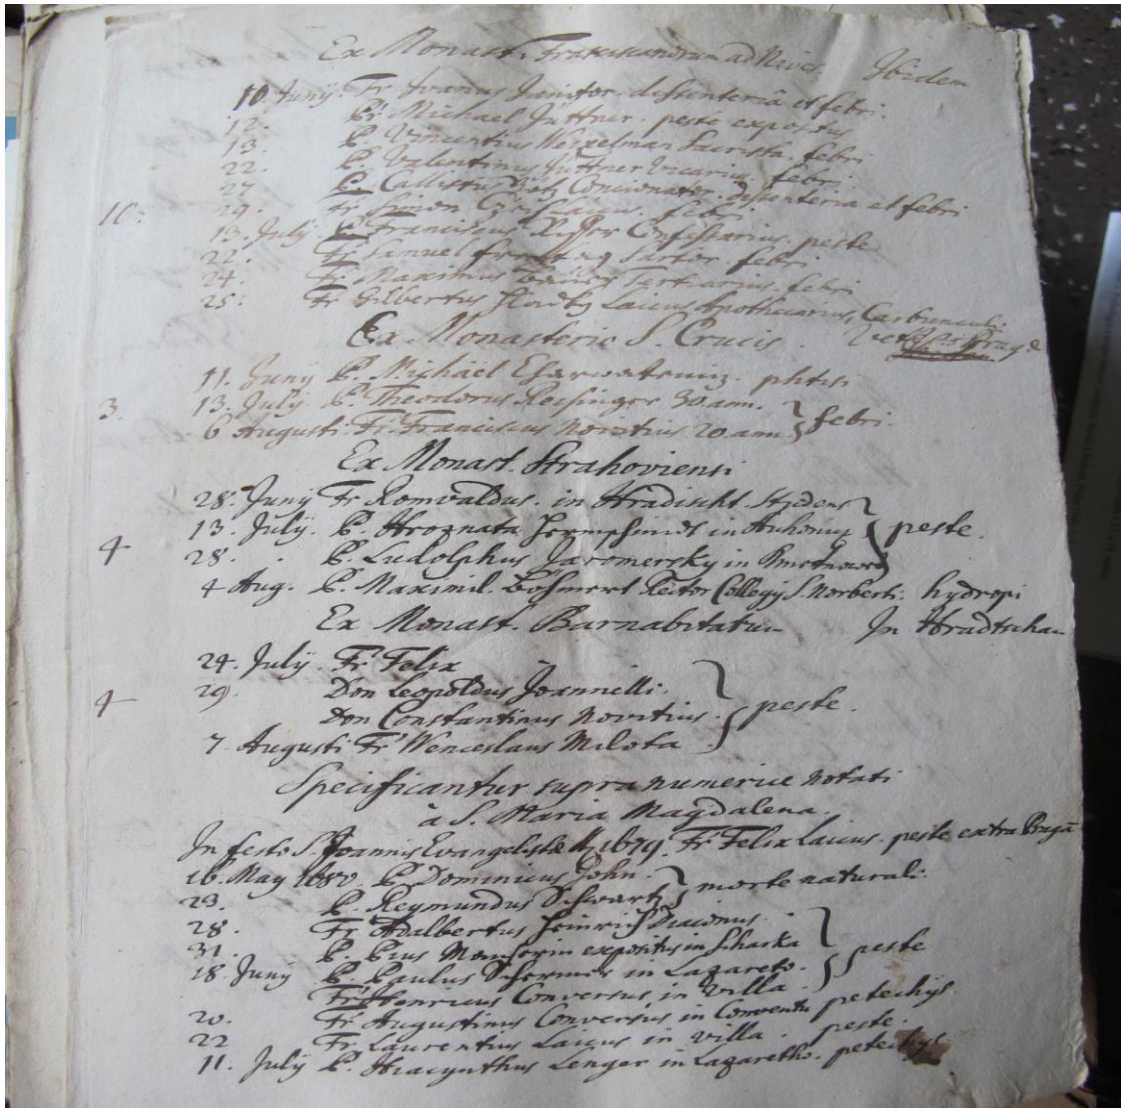 Ex Monast. Franciscanorum ad Nives Ibidem
10 Junij. Fr Ivanus Junitor. dissenteriâ et febri.
12. Pr Michael Jüttner. peste expositus
13. P. Vincentius Weixelman Sacrista. febri
22. P. Valentinus Jüttner Vicarius. febri
27. P. Callistus Concionator. dissenteria et febri
10. 29. Fr. Simon Laicus. febri.
13. July P. Franciscus Confessarius. peste
22. Fr Samuel Sartor. febri
24. Fr. Maximus Tertiarius. febri
25. Fr Gilbertus Laicus Apothecarius, Carbunculi.
Ex Monasterio S. Crucis. Pragæ
11. Juny P. Michäel phtisi
3. 13. July. P. Theodorus Reysinger 30. ann. febri.
6 Augusti. Fr. Franciscus Novitius 20. ann
Ex Monast. Strahoviensi
28. Junij Fr Romvaldus. in Hradischt Studens
13. July. P. Hroznata in peste.
4 28. . P. Ludolphus Jaromersky in
4 Aug. P. Maximil. Böhmert Rector Collegij S. Norberti. hydropi
Ex Monast. Barnabitatum In Hradtschan
24. July Fr Felix
29. Don Leopoldus Joannelli.
4 Don Constantinus Novitius. peste.
7. Augusti Fr Wenceslaus Milota
Specificantur supra numerice notati
à S. Maria Magdalena.
In festo S. Joannis Evangelistæ 1679. Fr Felix Laicus. peste extra Pragã
16. May 1680. P. Dominicus John.
23. P. Reymundus Schwartz morte naturali.
28. Fr Adalbertus Heinrich Diaconus.
31. P. Pius expositus in Scharka
18. Juny P. Paulus in Lazareto. peste
Fr Henricus Conversus in villa.
20. Fr Augustinus Conversus in Conventu petechijs
22 Fr Laurentius Laicus in villa. peste.
11. July P. Hiacynthus Lenger in Lazaretho. petechijs